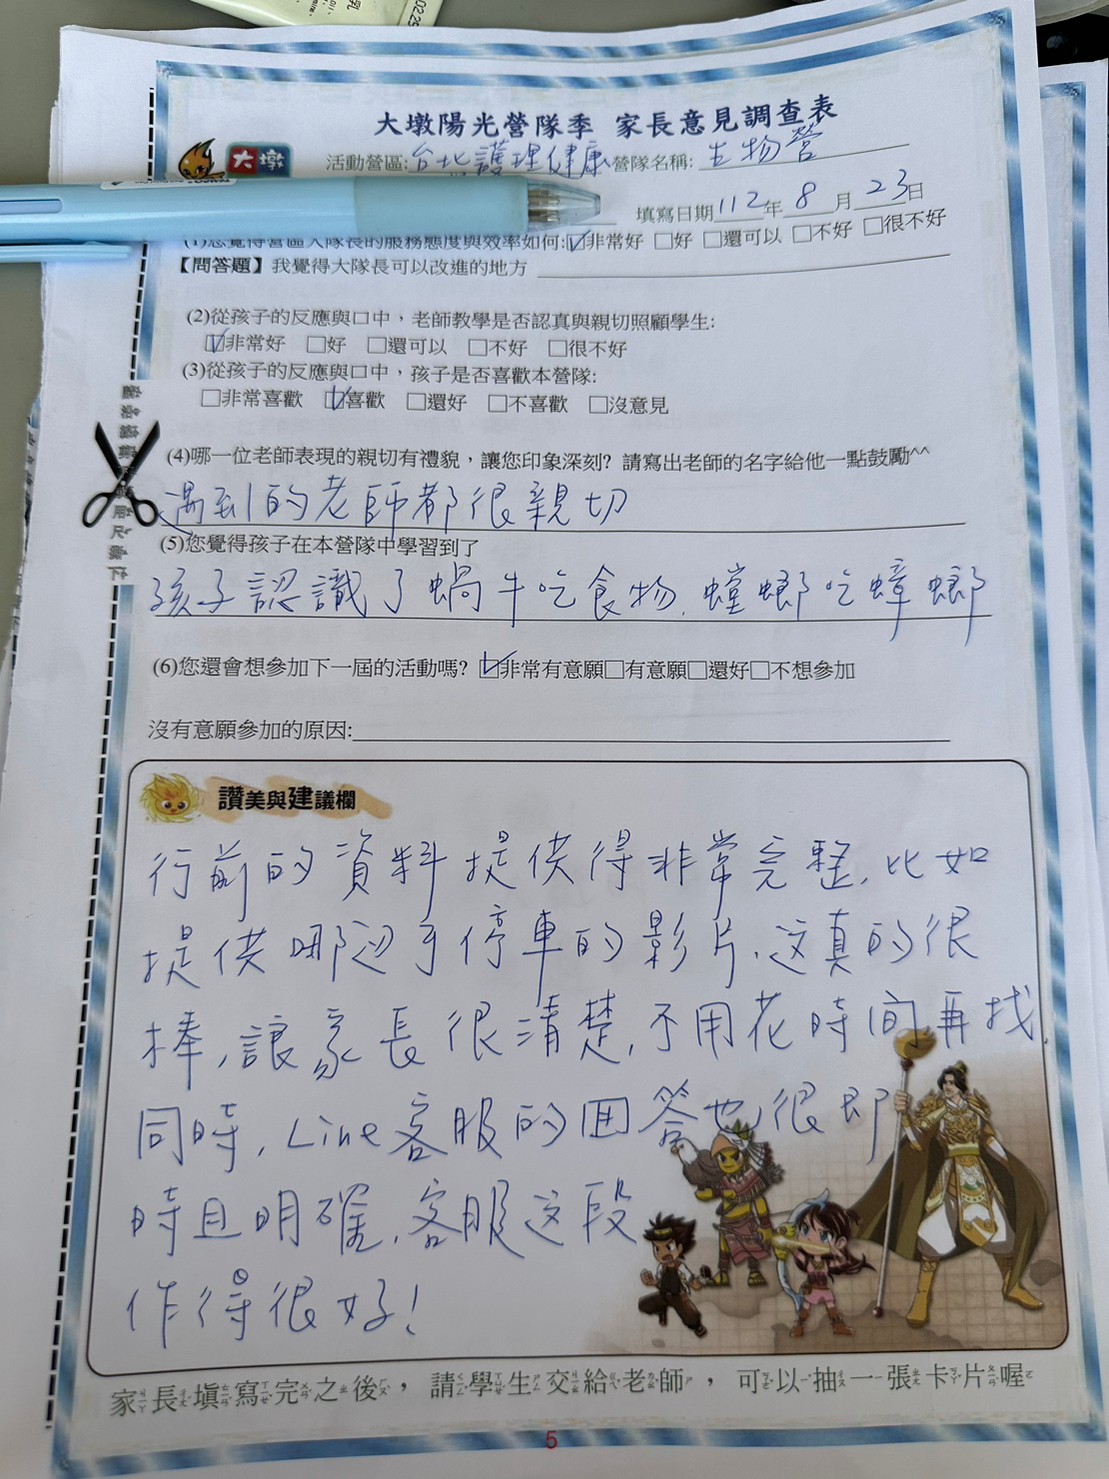 大墩陽光營隊季 家長意見調查表
大墩
活動營區:台北護理健康 營隊名稱: 生物營
填寫日期112年8月23日
(1)您覺得營區大隊長的服務態度與效率如何:☑非常好 □好 □還可以 □不好 □很不好
【問答題】我覺得大隊長可以改進的地方
(2)從孩子的反應與口中，老師教學是否認真與親切照顧學生:
☑非常好 □好 □還可以 □不好 □很不好
(3)從孩子的反應與口中，孩子是否喜歡本營隊:
□非常喜歡 ☑喜歡 □還好 □不喜歡 □沒意見
(4)哪一位老師表現的親切有禮貌，讓您印象深刻? 請寫出老師的名字給他一點鼓勵^^
遇到的老師都很親切
(5)您覺得孩子在本營隊中學習到了
孩子認識了蝸牛吃食物、螳螂吃蟑螂
(6)您還會想參加下一屆的活動嗎? ☑非常有意願□有意願□還好□不想參加
沒有意願參加的原因:
讚美與建議欄
行前的資料提供得非常完整,比如
提供哪邊可停車的影片,這真的很
棒,讓家長很清楚,不用花時間再找
同時, Line客服的回答也很即
時且明確,客服這段
作得很好!
家長填寫完之後，請學生交給老師，可以抽一張卡片喔
5